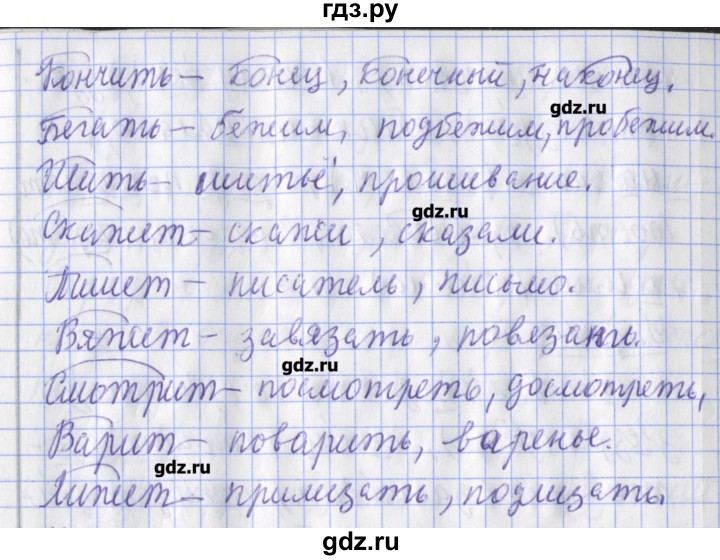 гдз.ру
Кончить – конец, конечный, наконец.
gdz.ru
Бегать – бежим, подбежим, пробежим.
Шить – шитьё, прошивание.
gdz.ru
Скажет – скажи, сказали.
Пишет – писатель, письмо.
Вяжет – завязать, повязать.
gdz.ru
Смотрит – посмотреть, досмотреть,
Варит – поварить, варенье.
gdz.ru
Лижет – прилизать, подлизать
gdz.ru